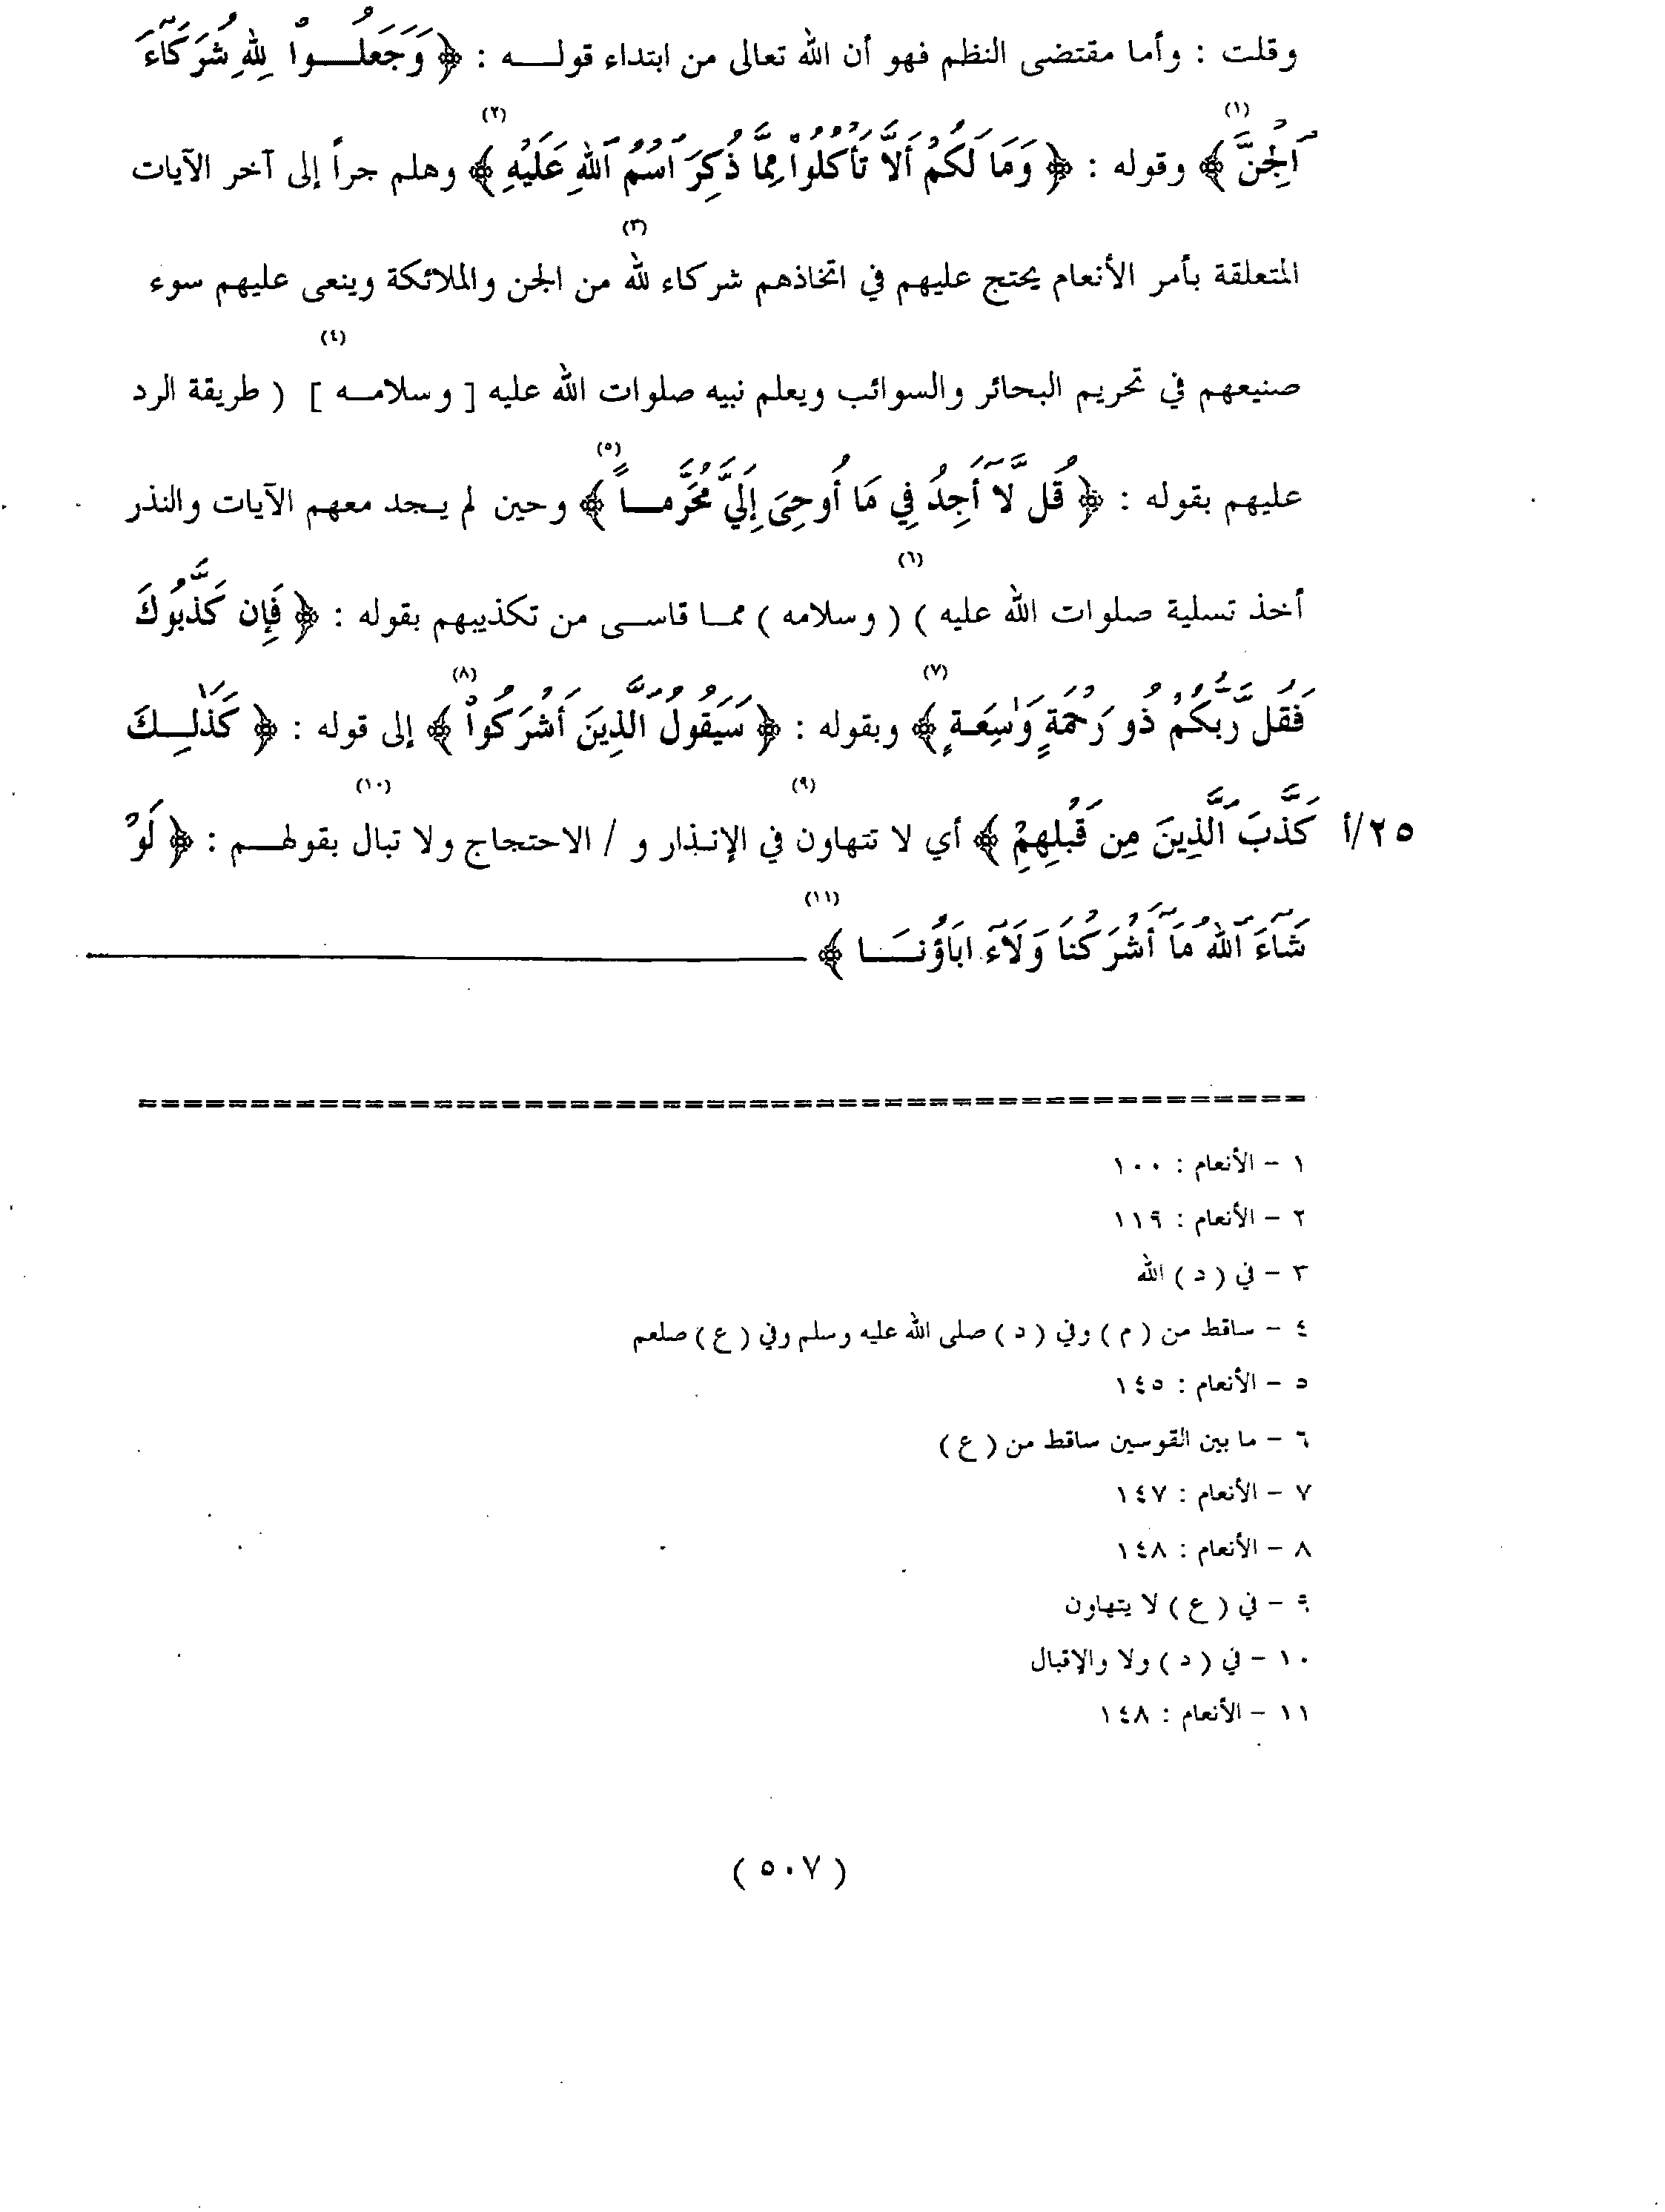 وقلت : وأما مقتضى النظم فهو أن الله تعالى من ابتداء قولـــه : ﴿ وَجَعَلُـــواْ لِلَّهِ شُرَكَآءَ
ٱلْجِنَّ ﴾(١) وقوله : ﴿ وَمَا لَكُمْ أَلاَّ تَأْكُلُواْ مِمَّا ذُكِرَ ٱسْمُ ٱللَّهِ عَلَيْهِ ﴾(٢) وهلم جراً إلى آخر الآيات
المتعلقة بأمر الأنعام يحتج عليهم في اتخاذهم شركاء لله(٣) من الجن والملائكة وينعى عليهم سوء
صنيعهم في تحريم البحائر والسوائب ويعلم نبيه صلوات الله عليه [ وسلامــه ](٤) ( طريقة الرد
عليهم بقوله : ﴿ قُل لَّآ أَجِدُ فِي مَا أُوحِىَ إِلَيَّ مُحَرَّمــاً ﴾(٥) وحين لم يـجد معهم الآيات والنذر
أخذ تسلية صلوات الله عليه )(٦) ( وسلامه ) ممــا قاســى من تكذيبهم بقوله : ﴿ فَإِن كَذَّبُوكَ
فَقُل رَّبُّكُمْ ذُو رَحْمَةٍ وَٰسِعَـةٍ ﴾(٧) وبقوله : ﴿ سَيَقُولُ ٱلَّذِينَ أَشْرَكُواْ ﴾(٨) إلى قوله : ﴿ كَذَٰلِـــكَ
٢٥/أ كَذَّبَ ٱلَّذِينَ مِن قَبْلِهِمْ ﴾ أي لا تتهاون(٩) في الإنـذار و / الاحتجاج ولا تبال(١٠) بقولهـــم : ﴿ لَوْ
شَآءَ ٱللَّهُ مَآ أَشْرَكْنَا وَلَآ ءَابَاؤُنـــَـا ﴾(١١)
١ - الأنعام : ١٠٠
٢ - الأنعام : ١١٩
٣ - في ( د ) الله
٤ - ساقط من ( م ) وفي ( د ) صلى الله عليه وسلم وفي ( ع ) صلعم
٥ - الأنعام : ١٤٥
٦ - ما بين القوسين ساقط من ( ع )
٧ - الأنعام : ١٤٧
٨ - الأنعام : ١٤٨
٩ - في ( ع ) لا يتهاون
١٠ - في ( د ) ولا والإقبال
١١ - الأنعام : ١٤٨
( ٥٠٧ )